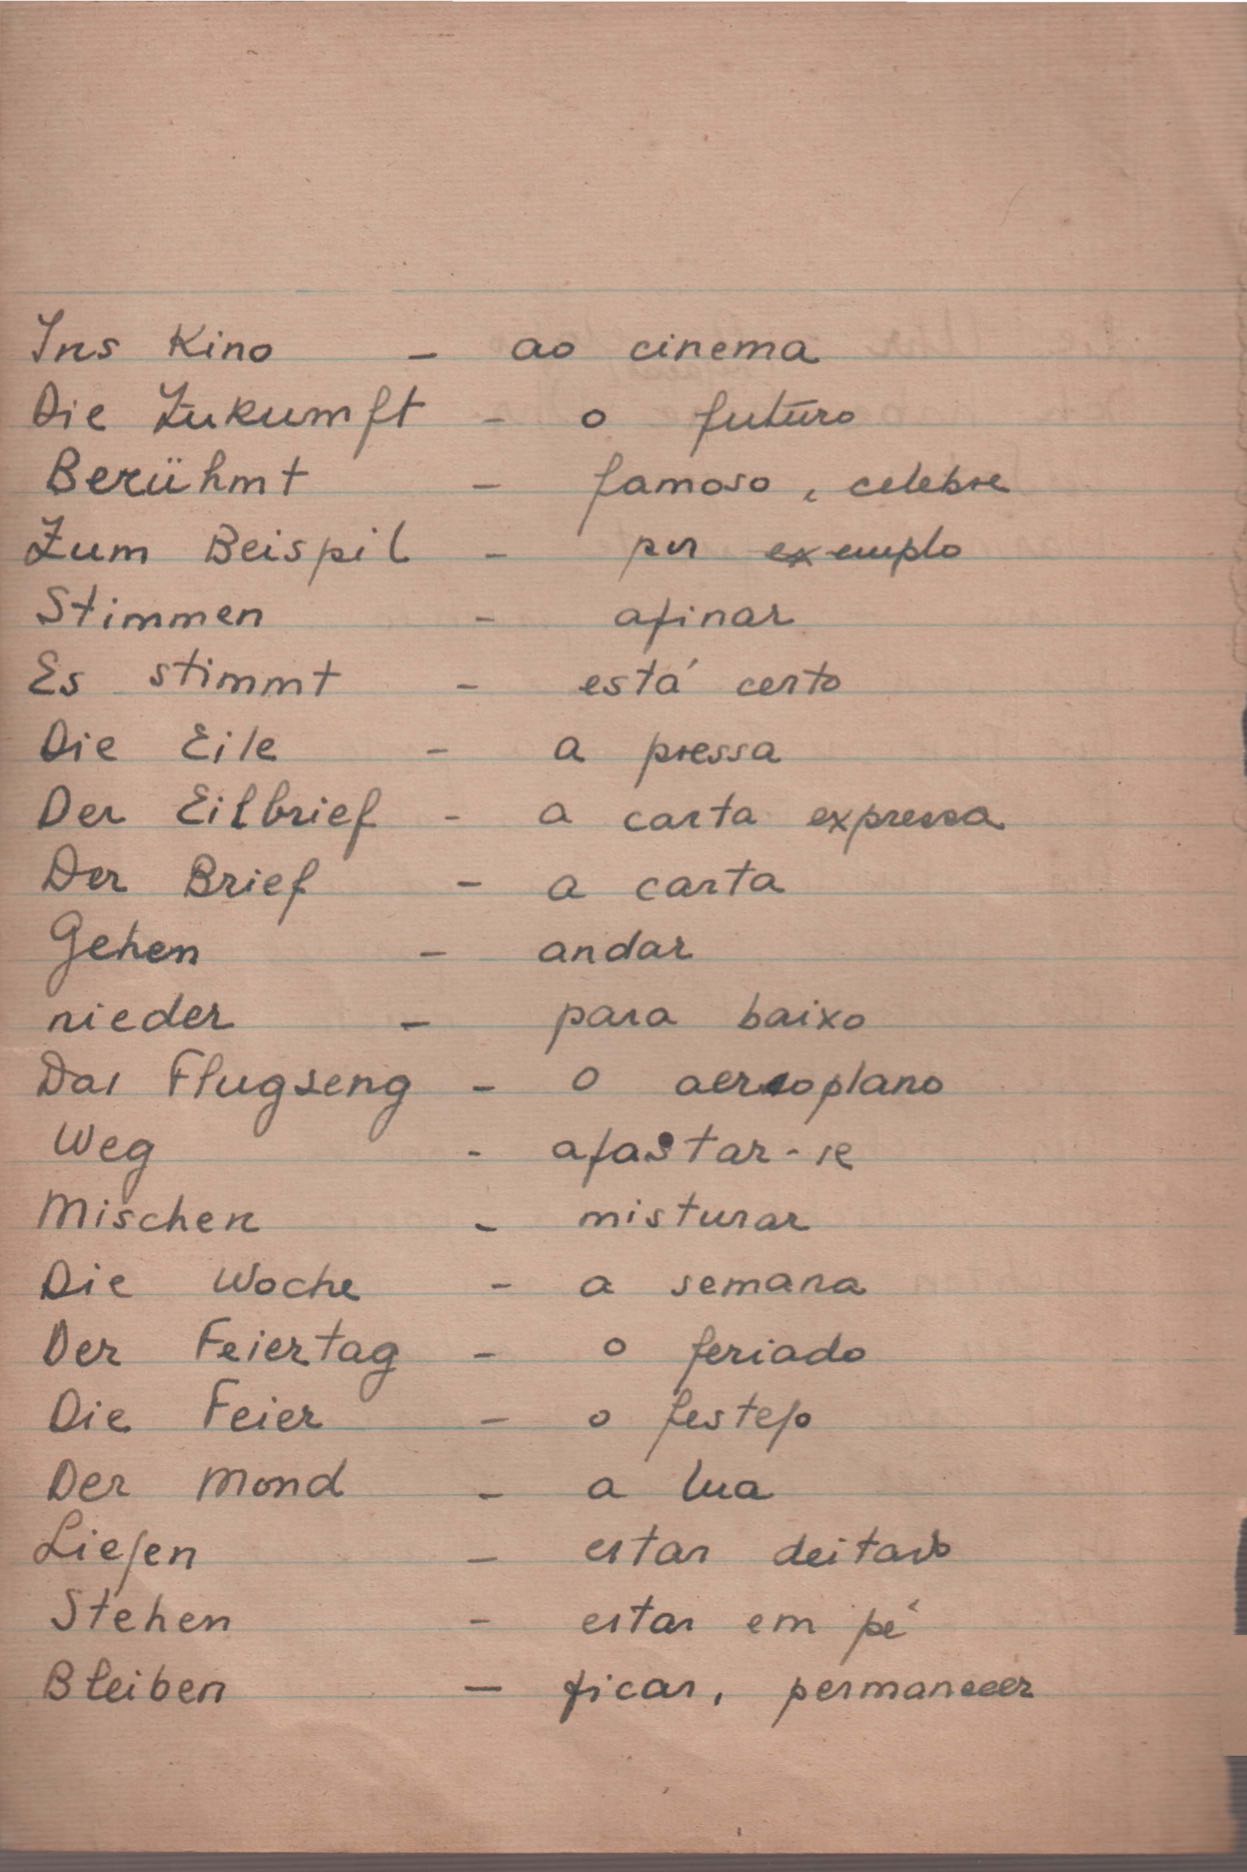 Ins Kino - ao cinema
Die Zukumft - o futuro
Berühmt - famoso, celebre
Zum Beispil - por exemplo
Stimmen - afinar
Es stimmt - está certo
Die Eile - a pressa
Der Eilbrief - a carta expressa
Der Brief - a carta
Gehen - andar
nieder - para baixo
Das Flugseng - O aeroplano
Weg - afastar-se
Mischen - misturar
Die Woche - a semana
Der Feiertag - o feriado
Die Feier - o festejo
Der Mond - a lua
Liegen - estar deitado
Stehen - estar em pé
Bleiben - ficar, permanecer